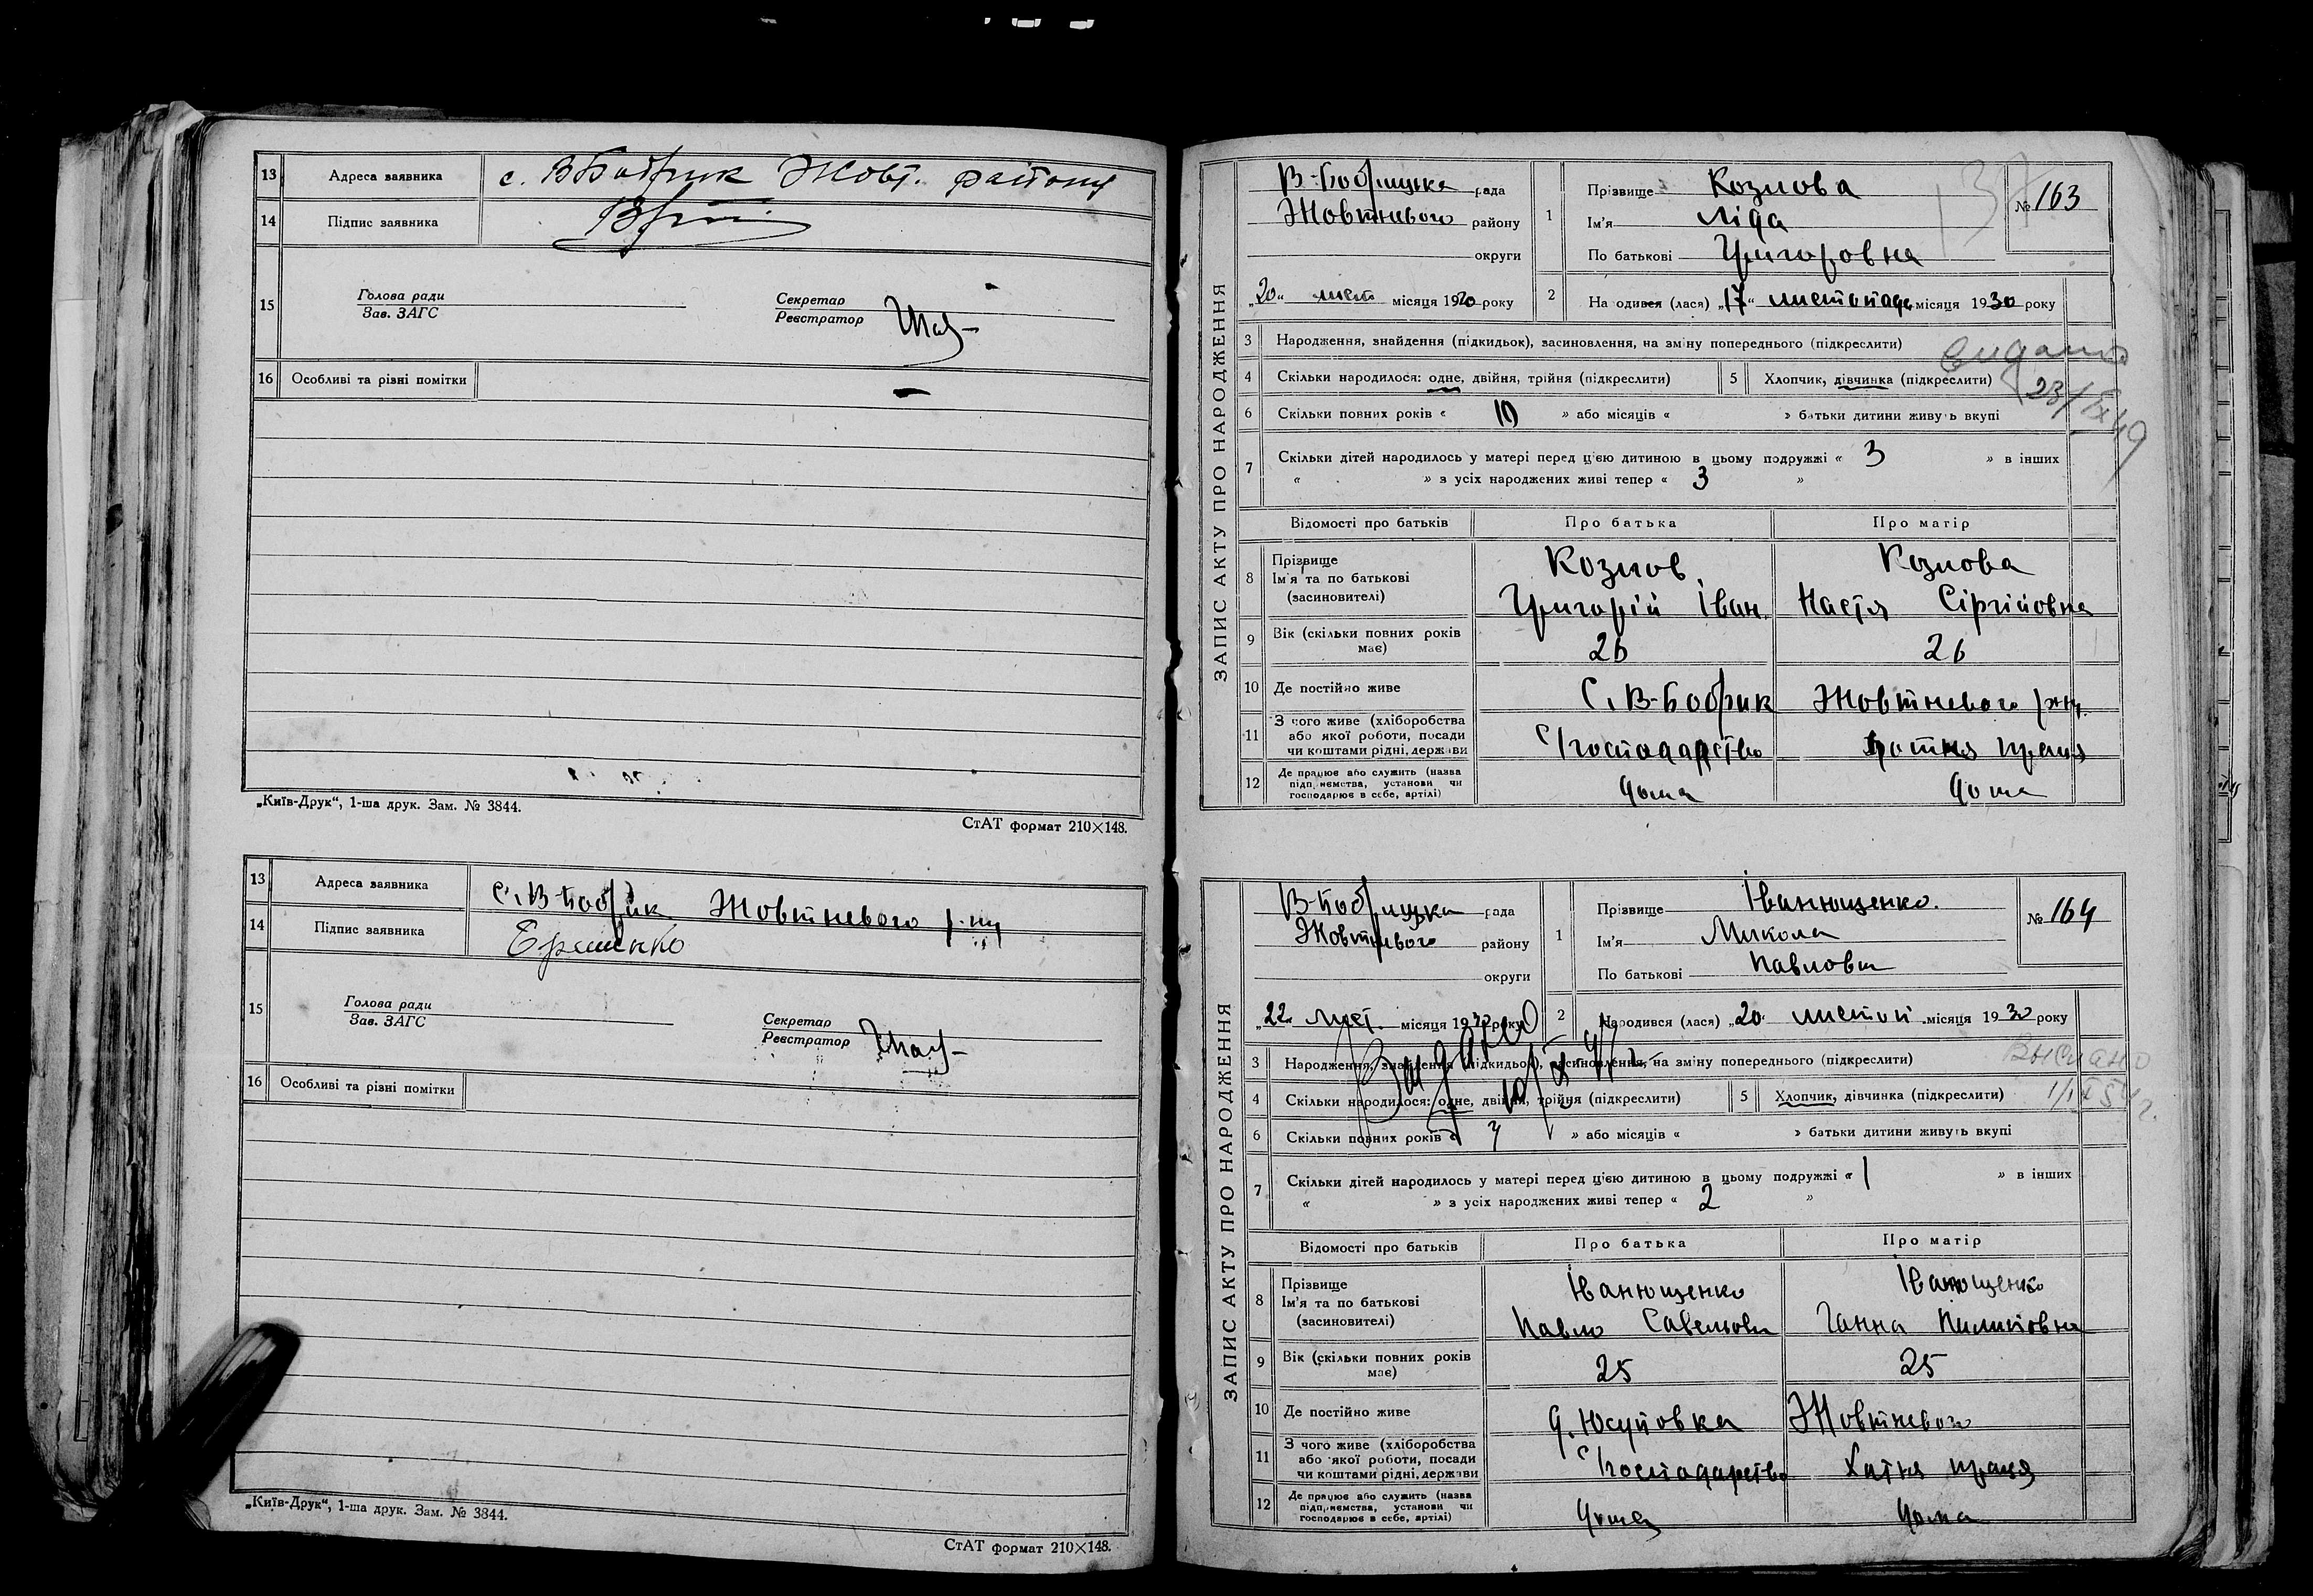 13 Адреса заявника с. ВБобрик Жовт. району
14 Підпис заявника
15 Голова ради
Зав. ЗАГС
Секретар
Реєстратор
16 Особливі та різні помітки
„Київ-Друк“, 1-ша друк. Зам. № 3844.
СтАТ формат 210×148.
13 Адреса заявника С. В-Бобрик Жовтневого р-ну
14 Підпис заявника
15 Голова ради
Зав. ЗАГС
Секретар
Реєстратор
16 Особливі та різні помітки
„Київ-Друк“, 1-ша друк. Зам. № 3844.
СтАТ формат 210×148.
ЗАПИС АКТУ ПРО НАРОДЖЕННЯ
В-Бобрицька рада
Жовтневого району
округи
„20“ лист місяця 1930 року
1 Прізвище Козлова
Ім'я Ліда
По батькові Григоровна
№ 163
137
2 На одився (лася) „17“ листопада місяця 1930 року
3 Народження, знайдення (підкидьок), засиновлення, на зміну попереднього (підкреслити)
видано
4 Скільки народилося: одне, двійня, трійня (підкреслити) 5 Хлопчик, дівчинка (підкреслити)
23/IX 49
6 Скільки повних років « 10 » або місяців « » батьки дитини живуть вкупі
7 Скільки дітей народилось у матері перед цією дитиною в цьому подружжі « 3 » в інших
« » з усіх народжених живі тепер « 3 »
Відомості про батьків Про батька Про матір
8 Прізвище
Ім'я та по батькові
(засиновителі)
Козлов
Григорій Іван.
Козлова
Настя Сіргійовна
9 Вік (скільки повних років має) 26 26
10 Де постійно живе С. В-Бобрик Жовтневого р-ну.
11 З чого живе (хліборобства
або якої роботи, посади
чи коштами рідні, держави
С/господарство праця
12 Де працює або служить (назва
підприємства, установи чи
господарює в себе, артілі)
дома дома
ЗАПИС АКТУ ПРО НАРОДЖЕННЯ
В-Бобрицька рада
Жовтневого району
округи
„22“ лист. місяця 1930 року
1 Прізвище Іванющенко.
Ім'я Микола
По батькові Павлович
№ 164
2 Народився (лася) „20“ листоп. місяця 1930 року
3 Народження, знайдення (підкидьок), засиновлення, на зміну попереднього (підкреслити)
Видано
4 Скільки народилося: одне, двійня, трійня (підкреслити) 5 Хлопчик, дівчинка (підкреслити)
6 Скільки повних років « » або місяців « » батьки дитини живуть вкупі
7 Скільки дітей народилось у матері перед цією дитиною в цьому подружжі « 1 » в інших
« » з усіх народжених живі тепер « 2 »
Відомості про батьків Про батька Про матір
8 Прізвище
Ім'я та по батькові
(засиновителі)
Іванющенко
Павло Савельович
Іванющенко
Ганна Пилиповна
9 Вік (скільки повних років має) 25 25
10 Де постійно живе д. Юсуповка Жовтневого
11 З чого живе (хліборобства
або якої роботи, посади
чи коштами рідні, держави
С/господарство Хатня праця
12 Де працює або служить (назва
підприємства, установи чи
господарює в себе, артілі)
дома дома